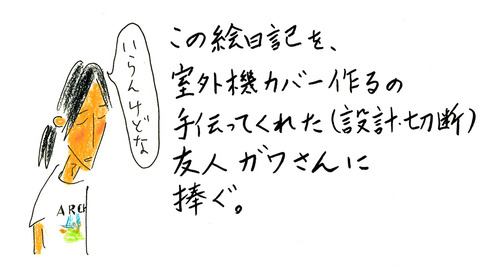 いらんけどな
この絵日記を、
室外機カバー作るの
手伝ってくれた(設計・切断)
友人ガワさんに
捧ぐ。
ARCH